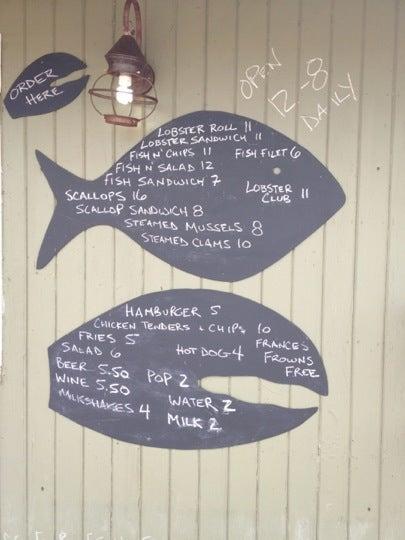 ORDER
HERE
OPEN
12-8
DAILY
LOBSTER ROLL 11
LOBSTER SANDWICH 11
FISH N' CHIPS 11
FISH FILET 6
FISH N SALAD 12
FISH SANDWICH 7
LOBSTER
CLUB 11
SCALLOPS 16
SCALLOP SANDWICH 8
STEAMED MUSSELS 8
STEAMED CLAMS 10
HAMBURGER 5
CHICKEN TENDERS + CHIPS 10
FRIES 5
SALAD 6
HOT DOG 4
FRANCES
FROWNS
FREE
BEER 5.50
POP 2
WINE 5.50
MILKSHAKES 4
WATER 2
MILK 2